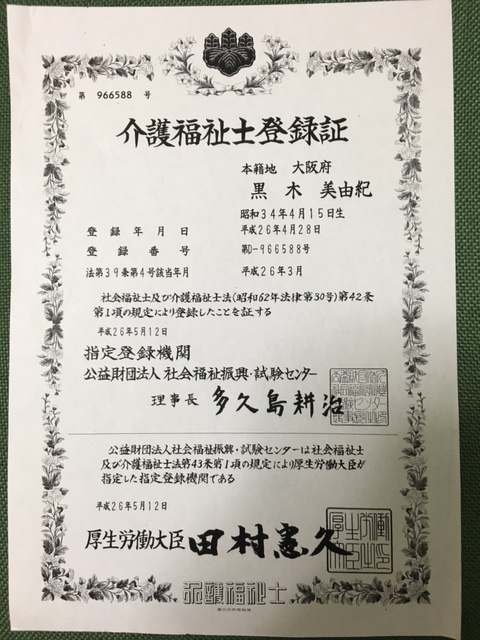 第 966588 号
介護福祉士登録証
本籍地 大阪府
黒木 美由紀
昭和34年4月15日生
登録年月日 平成26年4月28日
登録番号 第D-966588号
法第39条第4号該当年月 平成26年3月
社会福祉士及び介護福祉士法(昭和62年法律第30号)第42条
第1項の規定により登録したことを証する
平成26年5月12日
指定登録機関
公益財団法人 社会福祉振興・試験センター
理事長 多久島耕治
公益財団法人社会福祉振興・試験センターは社会福祉士
及び介護福祉士法第43条第1項の規定により厚生労働大臣が
指定した指定登録機関である
平成26年5月12日
厚生労働大臣 田村憲久
介護福祉士